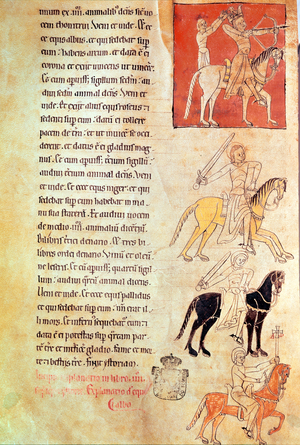 mium ex .iiii. animalib; dicens sic uo
cem thonitrui. Ueni et uide. Et ec
ce equs albus. et qui sedebat sup
eum: habens arcum. et data ē ei
corona et exiit uincens ut uincer&.
Et cum apuiss; sigillum scdm: au
diui scdm animal dicens. Ueni et
uide. Et exiit alius equs roseus: et
sedenti sup eum: datū ē ei tollere
pacem de tra: et ut inuicē se occi
derent. et datus ē ei gladius mag
nus. Et cum apuiss; tercium sigillū:
audiui tercium animal dicens. Ueni
et uide. Et ecce equs niger. et qui
sedebat sup eum habebat in ma
nu sua staterā. Et audiui uocem
de medio .iiii. animaliū dicentiū.
Bilibris tritici denario. Et tres bi
libres ordei denario. Uinū et oleū
ne leseris. Et cū apuiss; quartū sigil
lum: audiui qrtū animal dicens.
Ueni et uide. Et ecce equs pallidus
et qui sedebat sup eum: nm erat il
li mors. Et infern sequebat eum: et
data ē ei potestas sup qrtam par
tē tre et intficere gladio. fame et mor
te et bestiis tre. Finit ystoriam
explanatio in libro .iiii.
Explanatio d equo
albo.